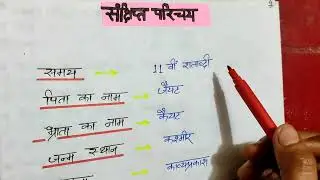 संक्षिप्त परिचय
समय → 11 वीं शताब्दी
पिता का नाम → जैयट
भ्राता का नाम → कैयट
जन्म स्थान → कश्मीर
→ काव्यप्रकाश